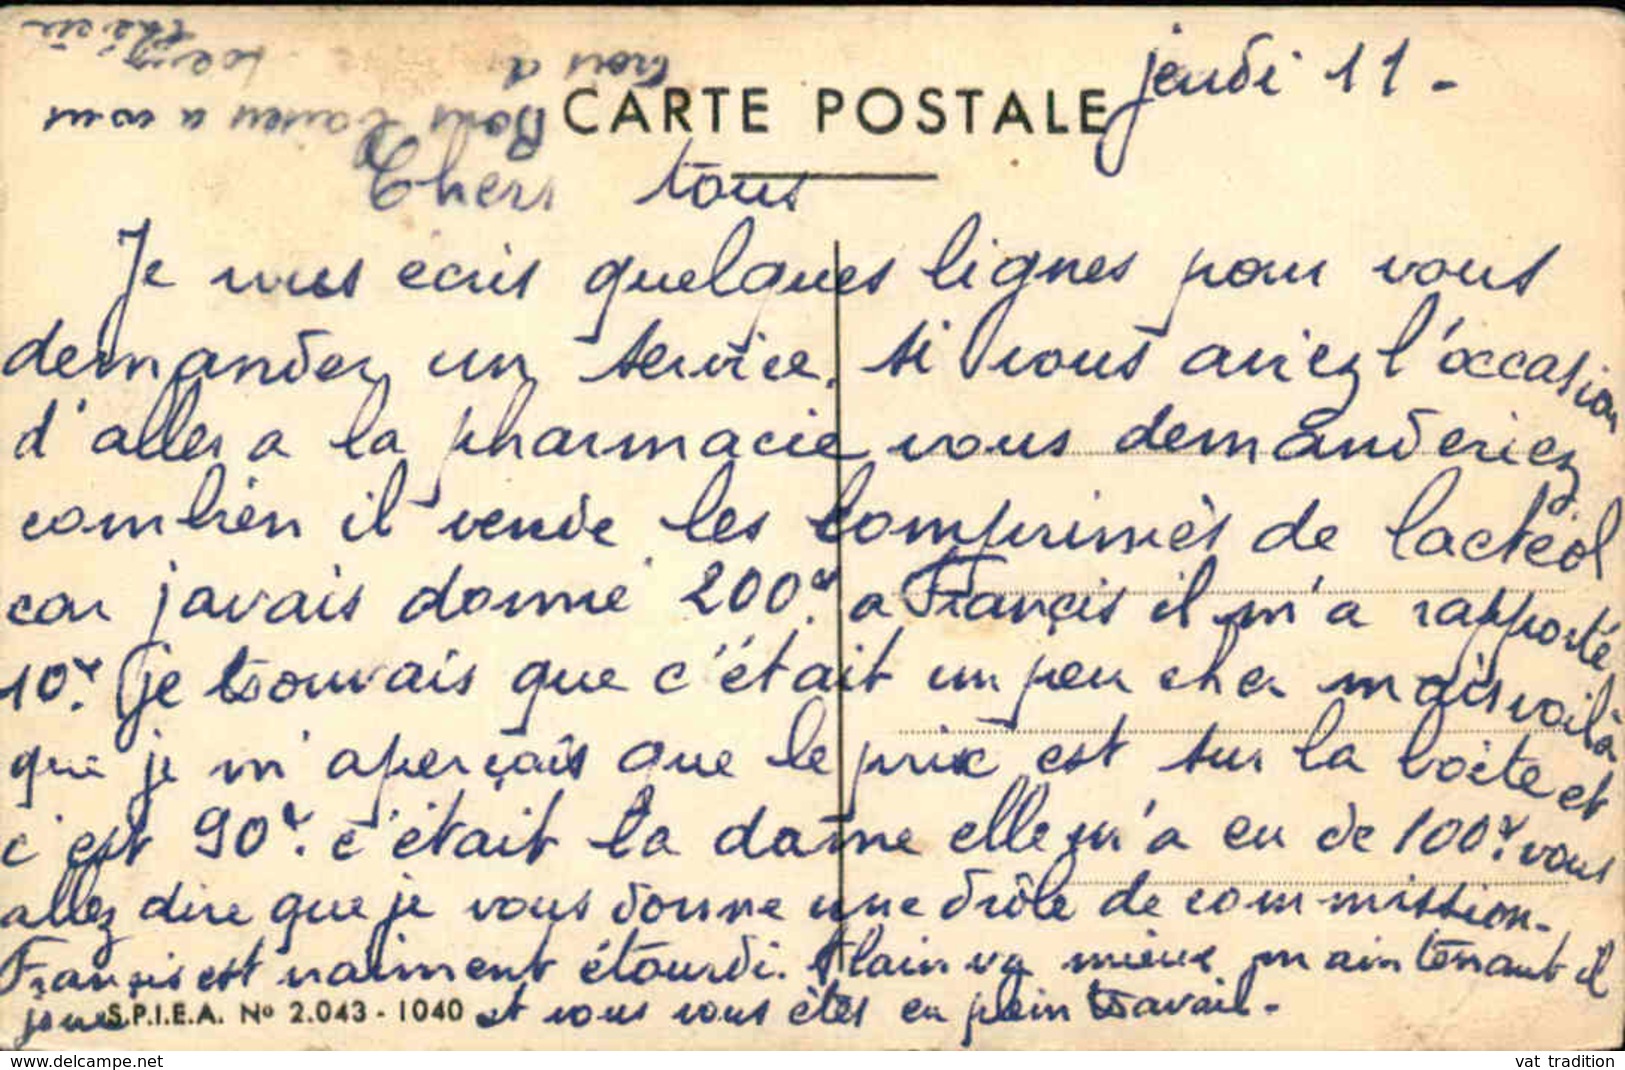 jeudi 11 -
CARTE POSTALE
Chers tous
Je vous écris quelques lignes pour vous
demander un service. si vous aviez l'occasion
d'aller a la pharmacie vous demanderiez
combien il vende les comprimés de lactéol
car javais donné 200 a Françis il m'a rapporté
10. je trouvais que c'était un peu cher mais voilà
que je m'aperçois que le prix est sur la boite et
c'est 90. c'était la dame elle m'a eu de 100. vous
allez dire que je vous donne une drôle de commission.
Françis est vraiment étourdi. Alain va mieux maintenant il
joue et vous vous êtes en plein travail.
S.P.I.E.A. No 2.043 - 1040
Bons a vous
www.delcampe.net
vat_tradition